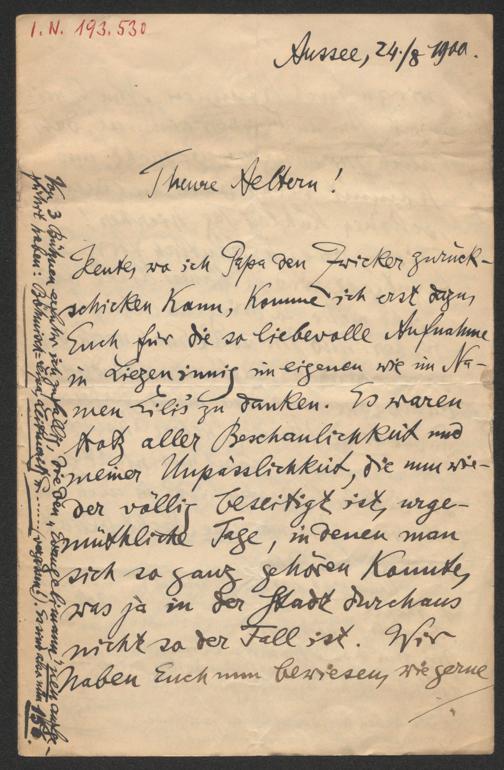 I. N. 193.530
Aussee, 24./8 1900.
Theure Aeltern!
Heute, wo ich Papa den Zwicker zurück-
schicken kann, komme ich erst dazu,
Euch für die so liebevolle Aufnahme
in Liezen innig im eigenen wie im Na-
men Lili's zu danken. Es waren
trotz aller Beschaulichkeit und
meiner Unpässlichkeit, die nun wie-
der völlig beseitigt ist, urge-
müthliche Tage, in denen man
sich so ganz gehören konnte,
was ja in der Stadt durchaus
nicht so der Fall ist. Wir
haben Euch nun bewiesen, wie gerne
Von 3 Bühnen erfuhr ich zufällig, die den "Evangelimann" neu aufge-
führt haben: Böhmisch-Leipa, (vergessen!). Es sind also nun 150.